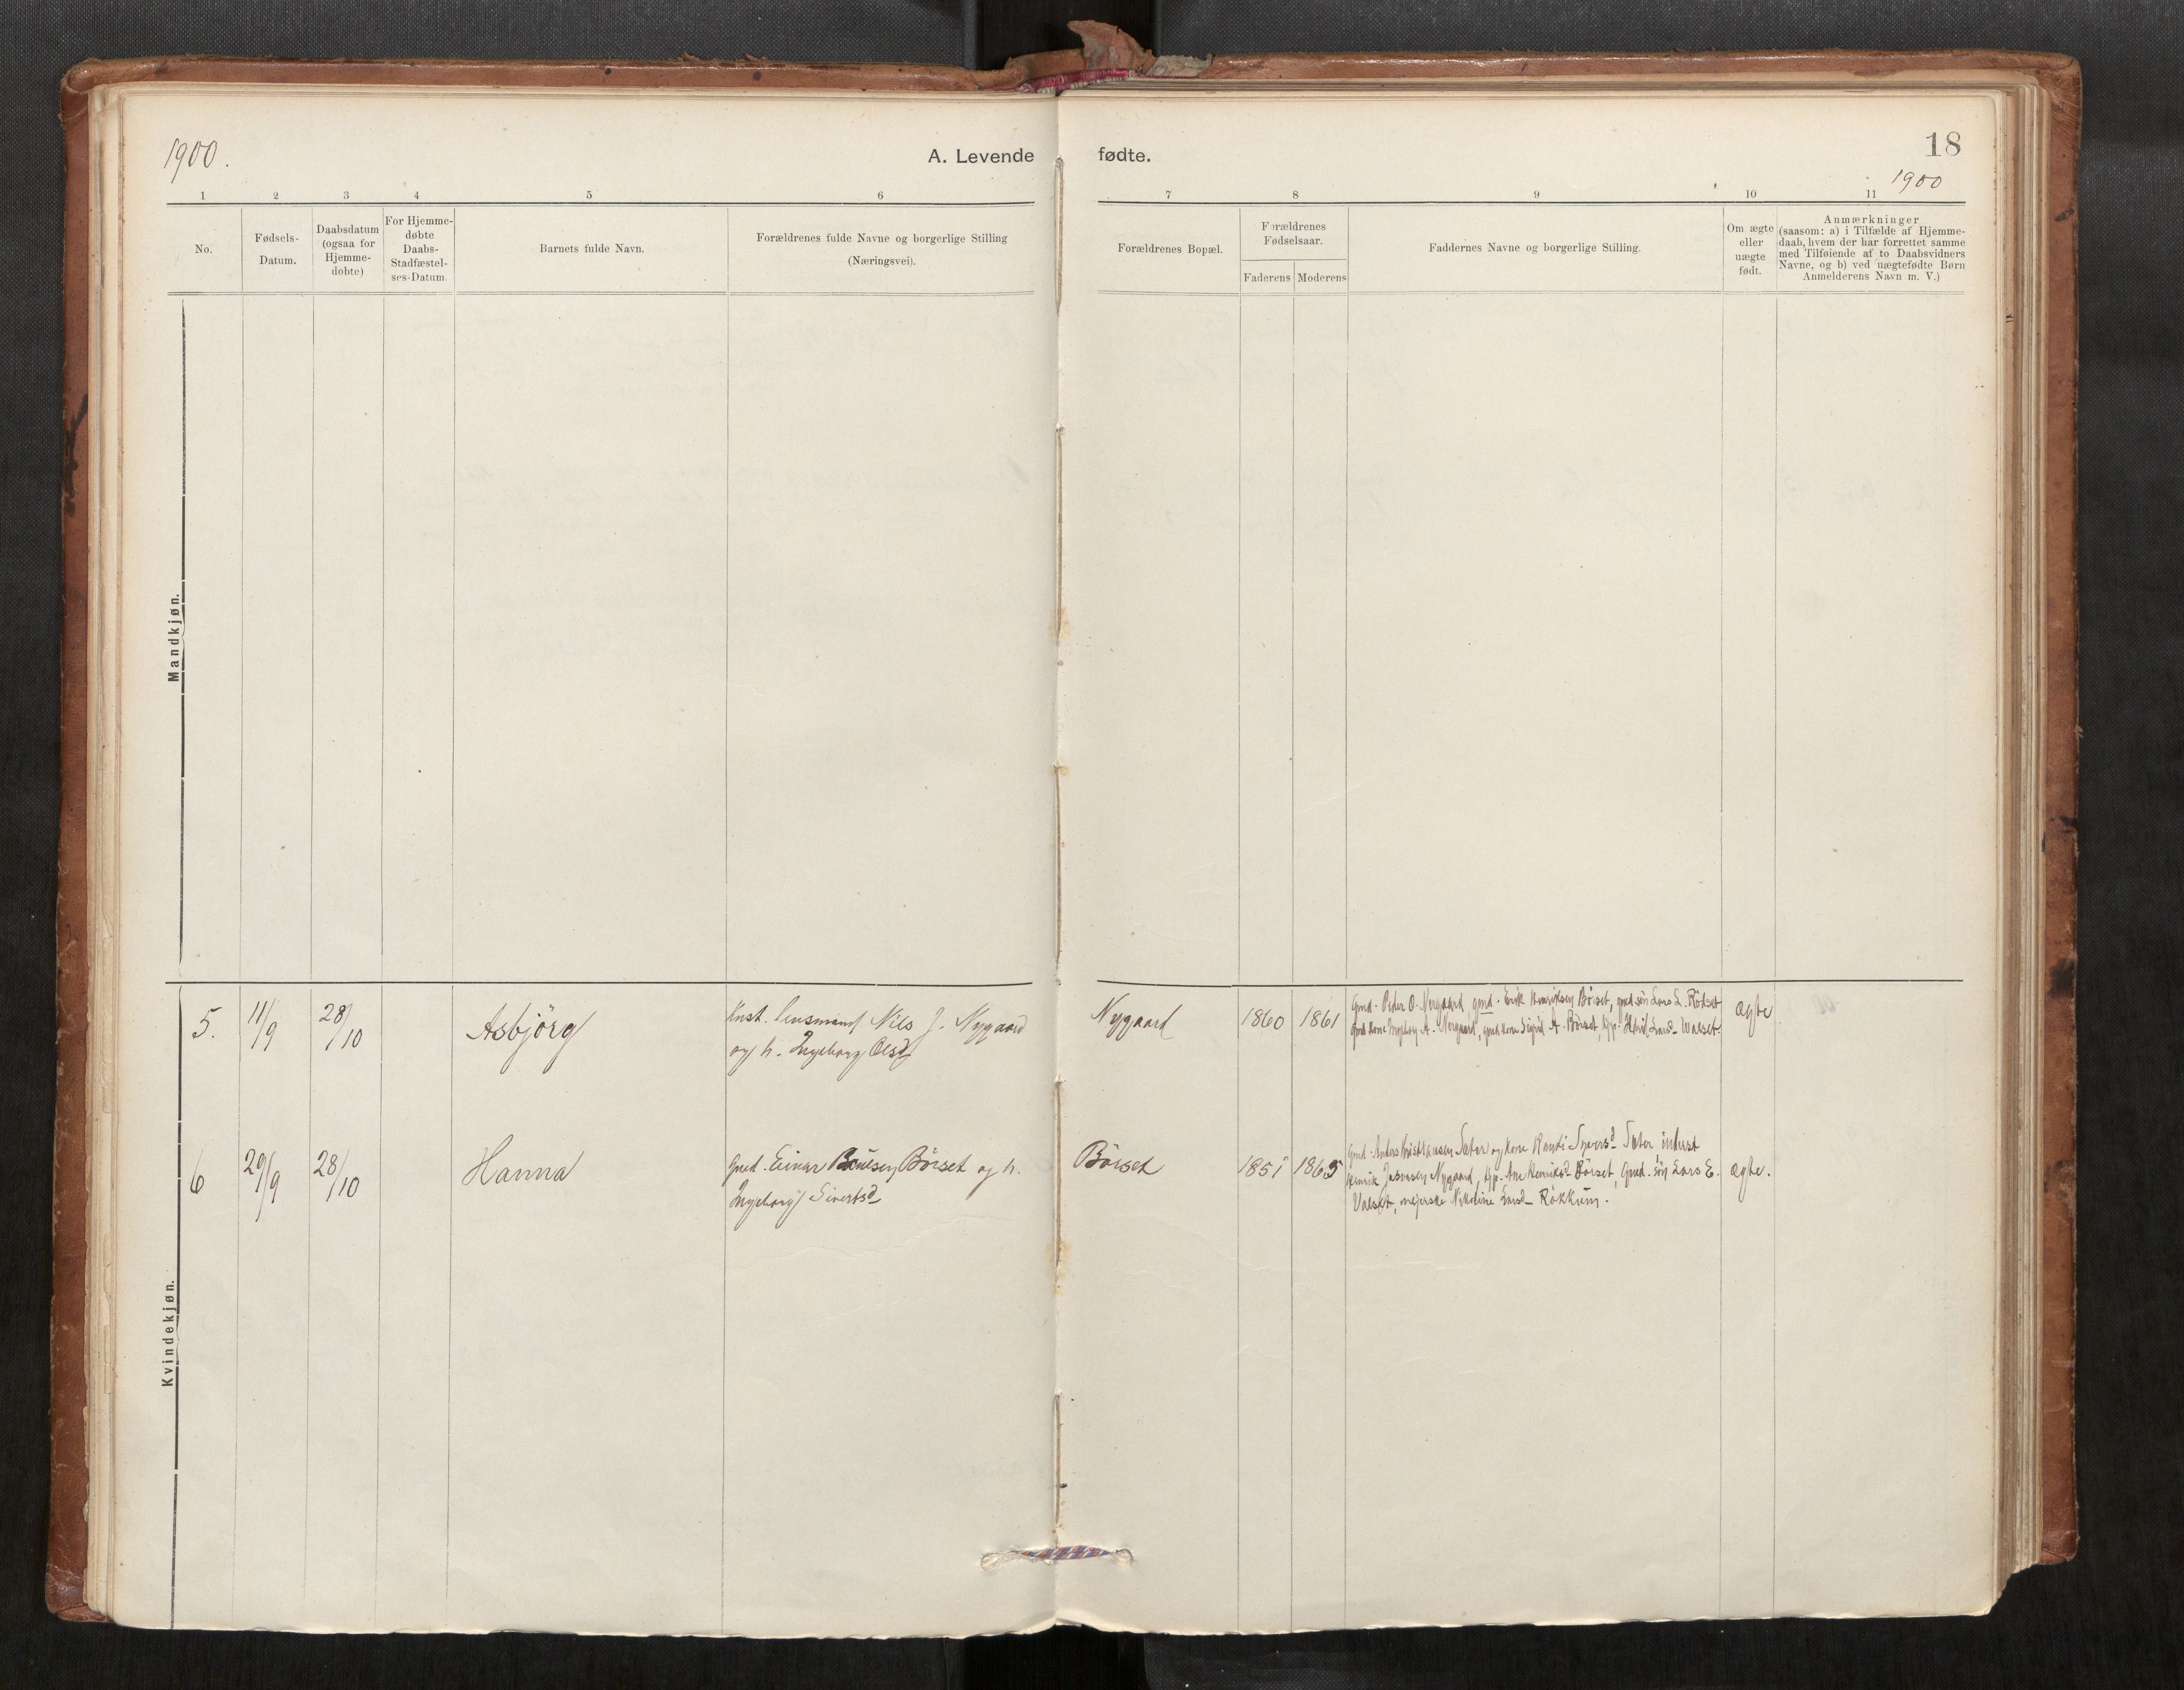 1900.
A. Levende fødte.
18
1900
1 2 3 4 5 6 7 8 9 10 11
No.
Fødsels-
Datum.
Daabsdatum
(ogsaa for
Hjemme-
døbte)
For Hjemme-
døbte
Daabs-
Stadfæstel-
ses-Datum.
Barnets fulde Navn.
Forældrenes fulde Navne og borgerlige Stilling
(Næringsvei).
Forældrenes Bopæl.
Forældrenes
Fødselsaar.
Faderens Moderens
Faddernes Navne og borgerlige Stilling.
Om ægte
eller
uægte
født.
Anmærkninger
(saasom: a) i Tilfælde af Hjemme-
daab, hvem der har forrettet samme
med Tilføiende af to Daabsvidners
Navne, og b) ved uægtefødte Børn
Anmelderens Navn m. V.)
Mandkjøn.
Kvindekjøn.
5. 11/9 28/10 Asbjörg
Konst. Lensmand Nils J. Nygaard
og h. Ingeborg Olsd
Nygaard 1860 1861
Gmd. Peder O. Nergaard gmd. Erik Henriksen Börset, gmd.sön Lars L. Rödset
gmd.kone Ingeborg A. Nergaard, gmd.kone Sigrid A. Börset, Larsd. Walset
ægte
6 29/9 28/10 Hanna
Gmd. Einar Börset og h.
Ingeborg Sivertsd
Börset 1851 1865
Gmd. Anders Kristiansen Sæter og kone Randi Siversd. Sæter, inderst
Henrik Nygaard, Ane Henriksd. Börset, Gmd. sön Lars E.
Valset, meierske Nikoline Larsd. Rökkum.
ægte.